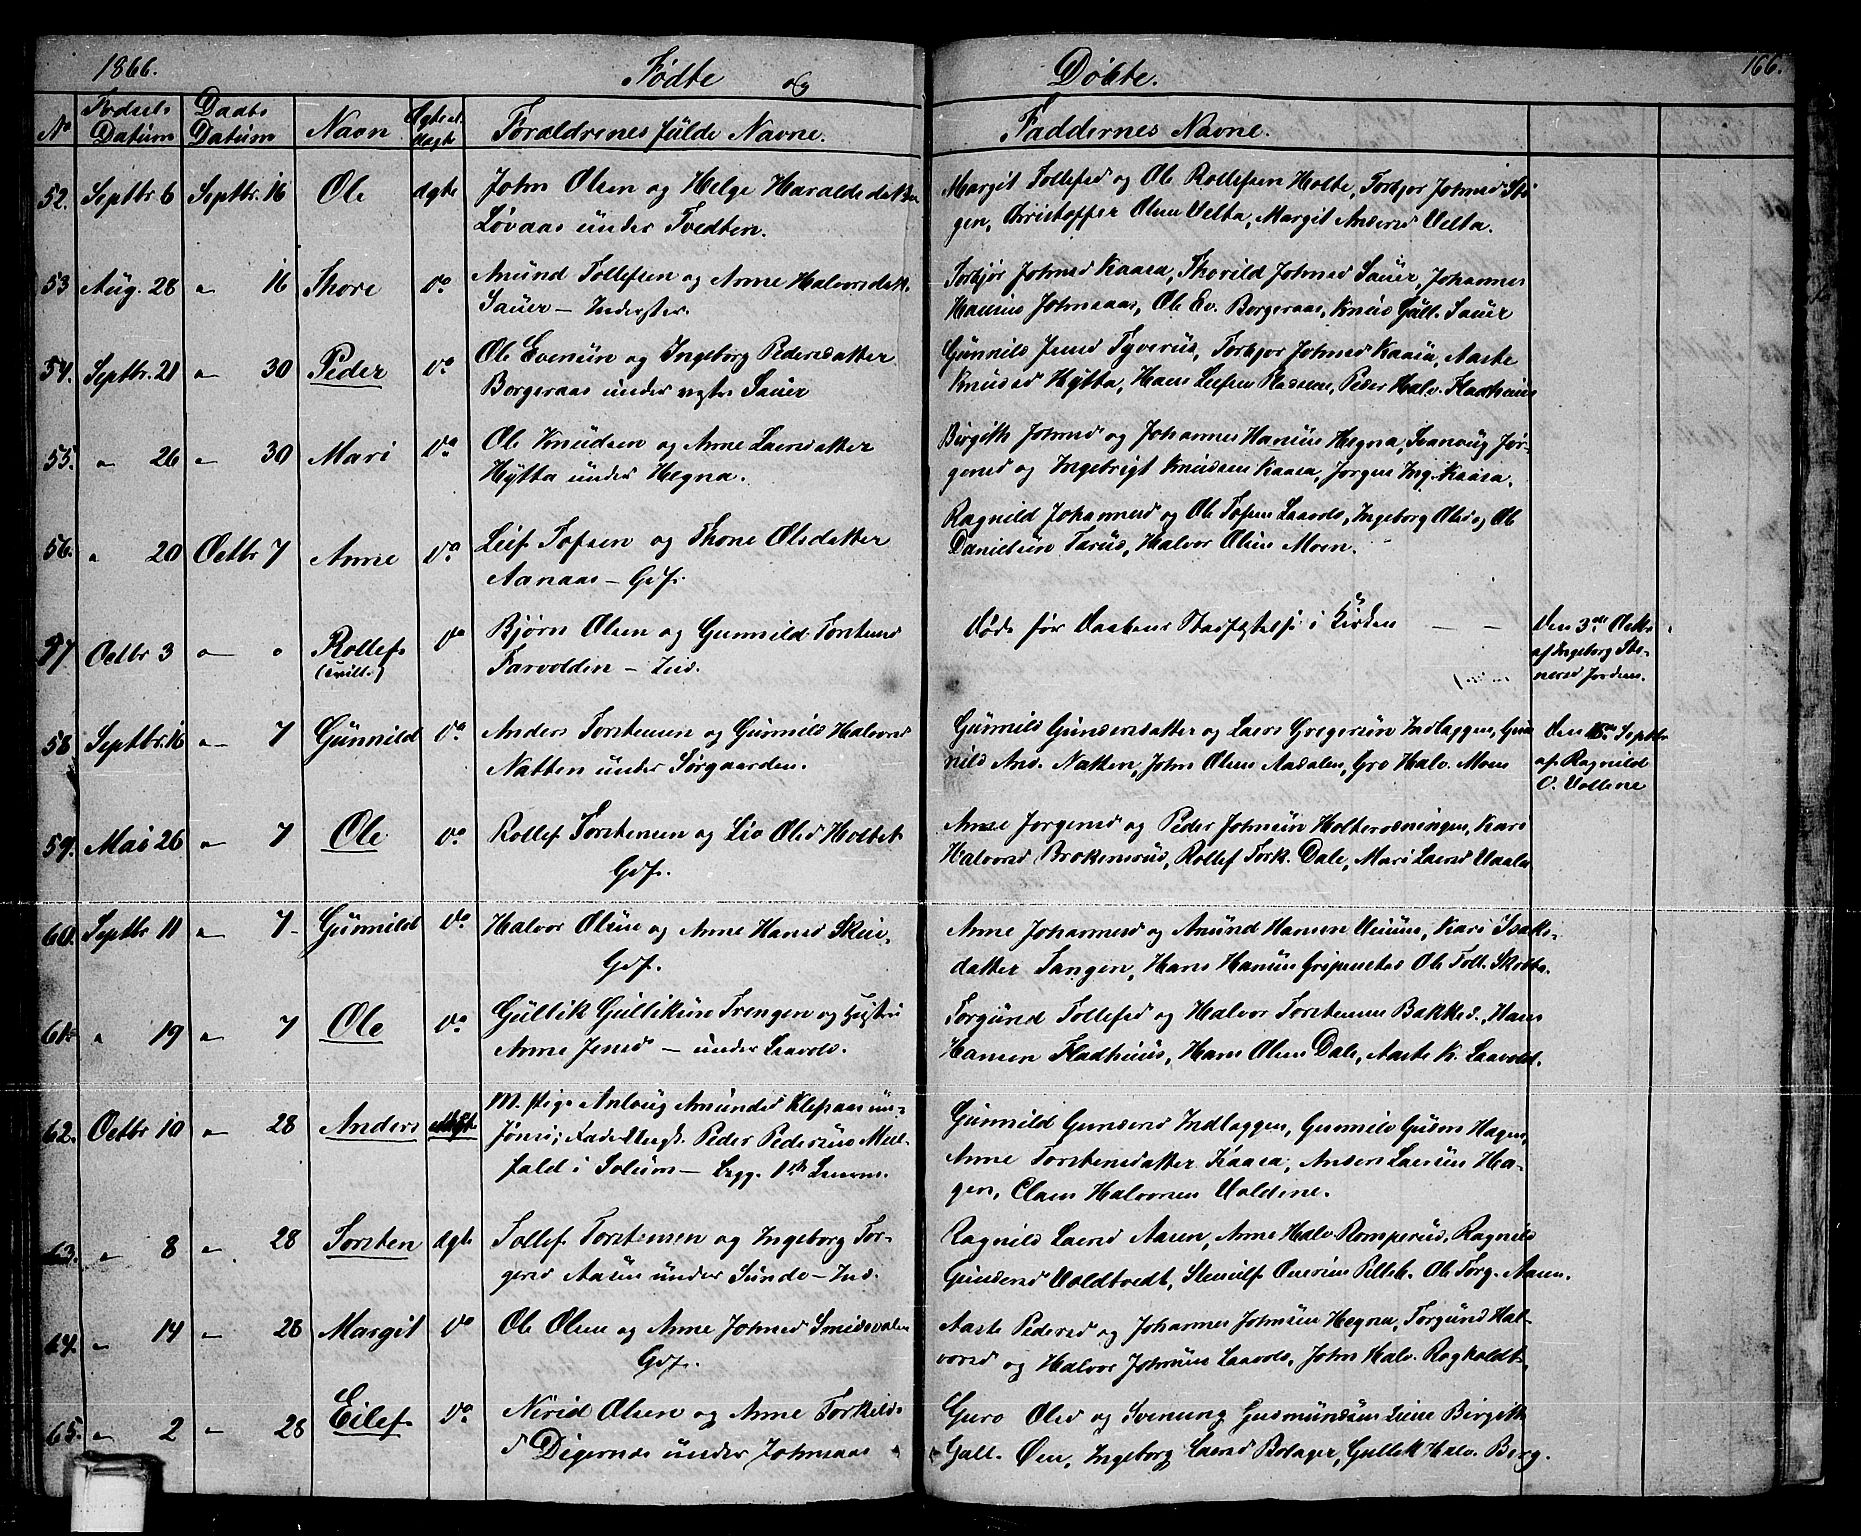 1866.
Fødte og
Døbte.
166.
No
Fødsels Datum
Daabs Datum
Navn
Ægte el. uægte
Forældrenes fulde Navne.
Faddernes Navne.
52. Septbr 6 Septbr. 16 Ole ægte John Olsen og Helge Haraldsdatter
Løvaas under Tvedten.
Margit Tollefsd og Ole Rollefsen Holte, Torbjør Johnsd
gen, Christopher Olsen Velta, Margit Andersd Velta.
53 Aug. 28 " 16 Thore do Amund Tollefsen og Anne Halvorsdatt.
Sauer – Inderster.
Torbjør Johnsd Kaasa, Thorild Johnsd Sauer, Johannes
Hansen Johnsaas, Ole Ev. Borgeraas, Knud Gull. Sauer
54. Septbr. 21 " 30 Peder do Ole Evensen og Ingeborg Pedersdatter
Borgeraas under Sauer
Gunnild Jensd Tyverud, Torbjør Johnsd Kaasa, Aaste
Knudsd Hytta, Hans Leifsen, Peder Halv. Fladhuus
55. " 26 " 30 Mari do Ole Knudsen og Anne Larsdatter
Hytta under Hegna.
Birgith Johnsd og Johannes Hansen Hegna, Svanaug Jør-
gensd og Ingebrigt Knudsen Kaasa, Jørgen Ing. Kaasa.
56. " 20 Octbr 7 Anne do Leif Tofsen og Thone Olsdatter
Aanaas – Gdf.
Ragnild Johannesd og Ole Tofsen Laavold, Ingeborg Olsd og Ole
Danielsen Tarud, Halvor Olsen Moen.
57 Octbr 3 " " Rollef do Bjørn Olsen og Gunnild Torstensd
(tvill.) Farvolden – Ind.
Døde før Daabens Stadfæstelse i Kirken — —
Den 3die Octbr
af Ingeborg Ste-
nersd Jordem.
58. Septbr. 16 " 7 Gunnild do Anders Torstensen og Gunnild Halvorsd
Natten under Sørgaarden.
Gunnild Gundersdatter og Lars Gregersen Indlaggen, Gun
nild And. Natten, John Olsen Aasdalen, Gro Halv. Moen
Den Septbr
af Ragnild
O. Voldene
59. Mai 26 " 7 Ole do Rollef Torstensen og Liv Olsd Holtet
Gdf.
Anne Jørgensd og Peder Johnsen Holterødningen, Kari
Halvorsd Brokerud, Rollef Tork. Dale, Mari Larsd Vaale
60. Septbr 11 " 7 Gunnild do Halvor Olsen og Anne Hansd Skeie.
Gdf.
Anne Johannesd og Amund Hansen, Kari Isaks-
datter Tangen, Hans Hansen Gripenstad Ole Toll.
61. " 19 " 7 Ole do Gullik Gulliksen Trengen og Hustru
Anne Jensd – under Laavold.
Torgund Tollefsd og Halvor Torstensen Bakke, Hans
Hansen Fladhuus, Hans Olsen Dale, Aaste K. Laavold.
62. Octbr 10 " 28 Anders uægte M. Pige Anlaug Amundsd Klefsaas un-
Peder Pedersen
fald i Solum –
Gunnild Gundersd Indlaggen, Gunnild Hagen,
Anne Torstensdatter Kaasa, Anders Larsen Ha-
gen, Claus Halvorsen Voldene.
63. " 8 " 28 Torsten ægte Tollef Torstensen og Ingeborg Tor-
gersd Aasen under Sunde – Ind.
Ragnild Larsd Aasen, Anne Halv. Romperud, Ragnild
Gundersd Voldtvedt, Ole Torg. Aasen.
64. " 14 " 28 Margit do Ole Olsen og Anne Johnsd Smidsdalen
Gdf.
Aaste Pedersd og Johannes Johnsen Hegna, Torgund Hal-
vorsd og Halvor Johnsen Laavold, John Halv. Ragholdt.
65. " 2 " 28 Eilef do Nirid Olsen og Anne Torkilds
d Digernæs under Johnsaas
Guro Olsd og Svenung Gudmundsen Liene Birgith
Gull. Øen, Ingeborg Larsd Bolager, Gullik Halv. Berg.